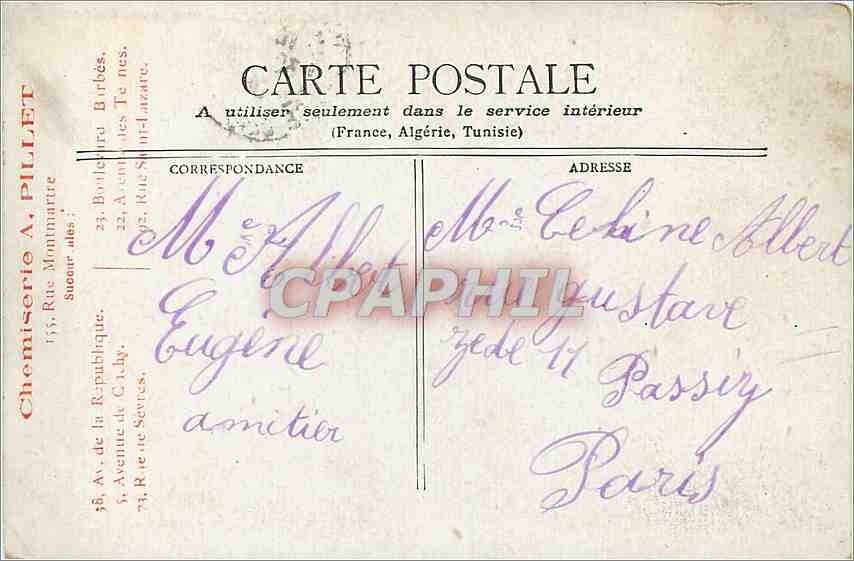 CARTE POSTALE
A utiliser seulement dans le service intérieur
(France, Algérie, Tunisie)
CORRESPONDANCE
Mr Albert
Eugène
amitier
ADRESSE
Mme Celine Albert
rue gustave
zede 11
Passiy
Paris
Chemiserie A. PILLET
155, Rue Montmartre
Succursales :
38, Av. de la République.
5, Avenue de Clichy.
73, Rue de Sèvres.
23, Boulevard Barbès.
22, Avenue des Ternes.
92, Rue Saint-Lazare.
CPAPHIL